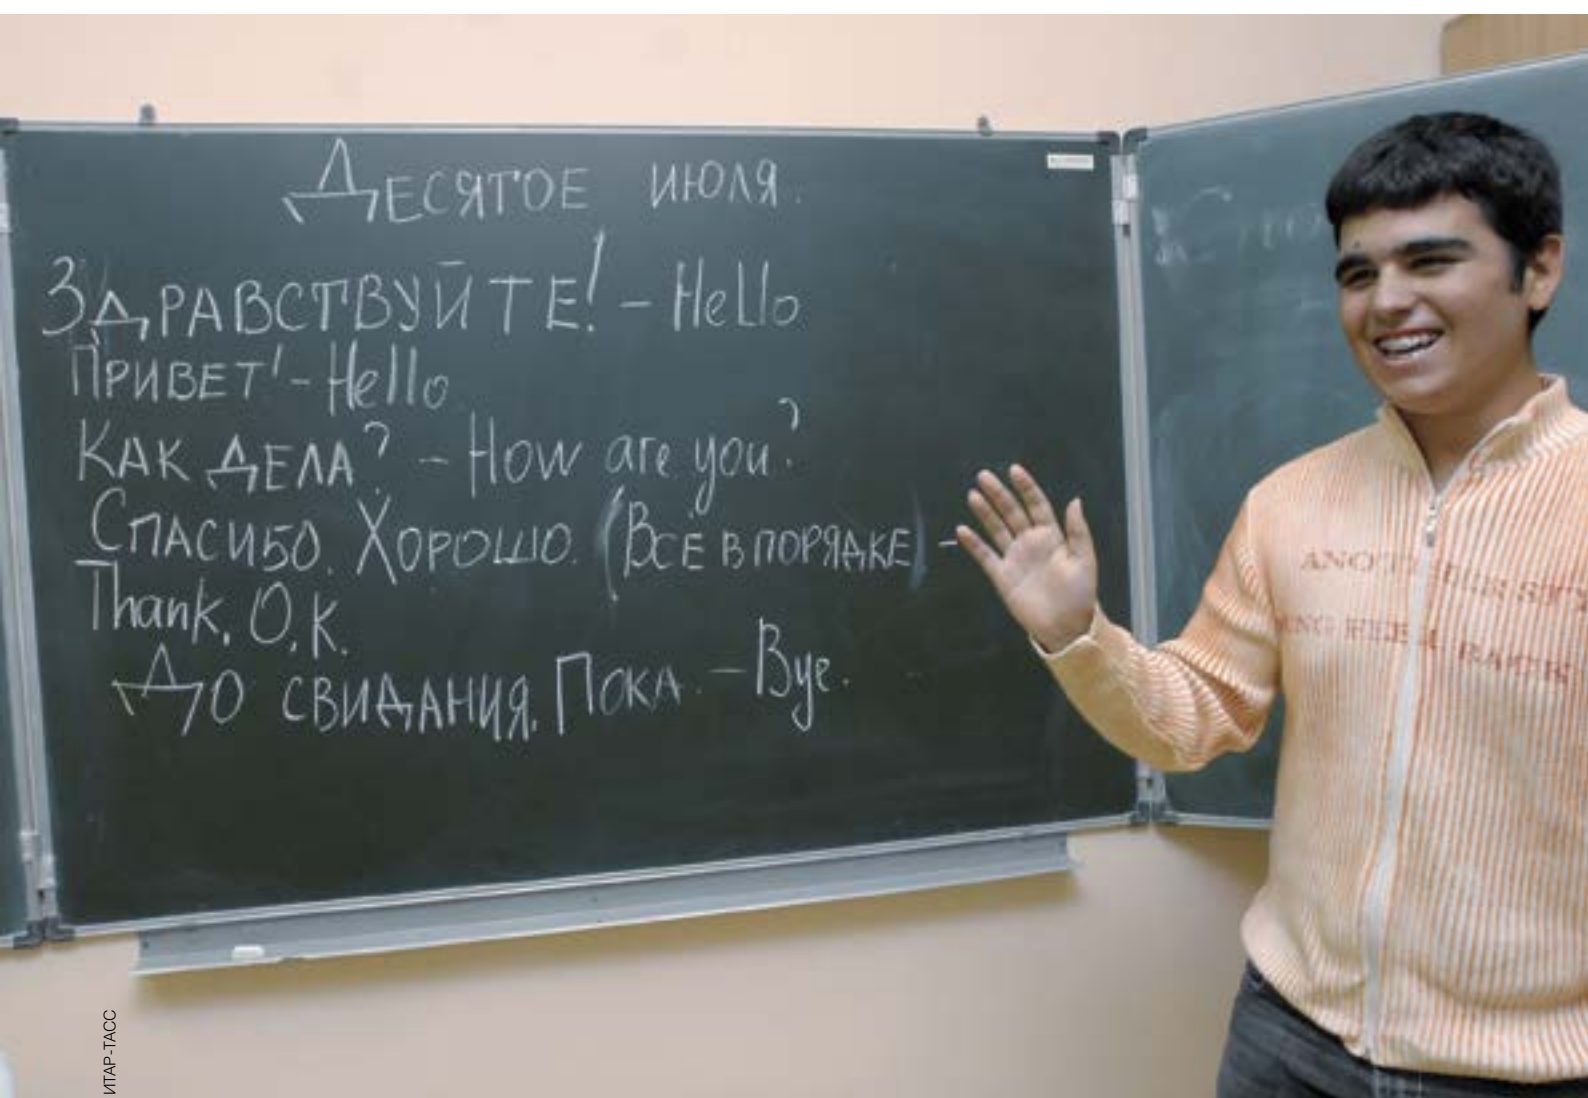 Десятое июля.
Здравствуйте! – Hello
Привет! – Hello
Как дела? – How are you?
Спасибо. Хорошо. (Всё в порядке) –
Thank. O.K.
До свидания. Пока. – Bye.
ИТАР-ТАСС